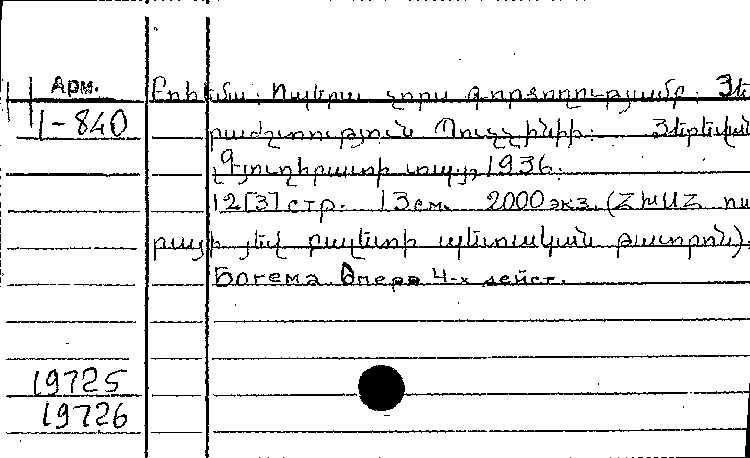 Арм. Բոհեմա: Ոպերա չորս գործողությամբ: Յե
1-840 րաժշտություն Պուչչինիի: Յերեվան
Գյուղհրատի տպ., 1936:
12[3] стр. 13 см. 2000 экз. (ՀԽՍՀ ոպե
րայի յեվ բալետի պետական թատրոն).
Богема. Опера 4-х дейст.
19725
19726